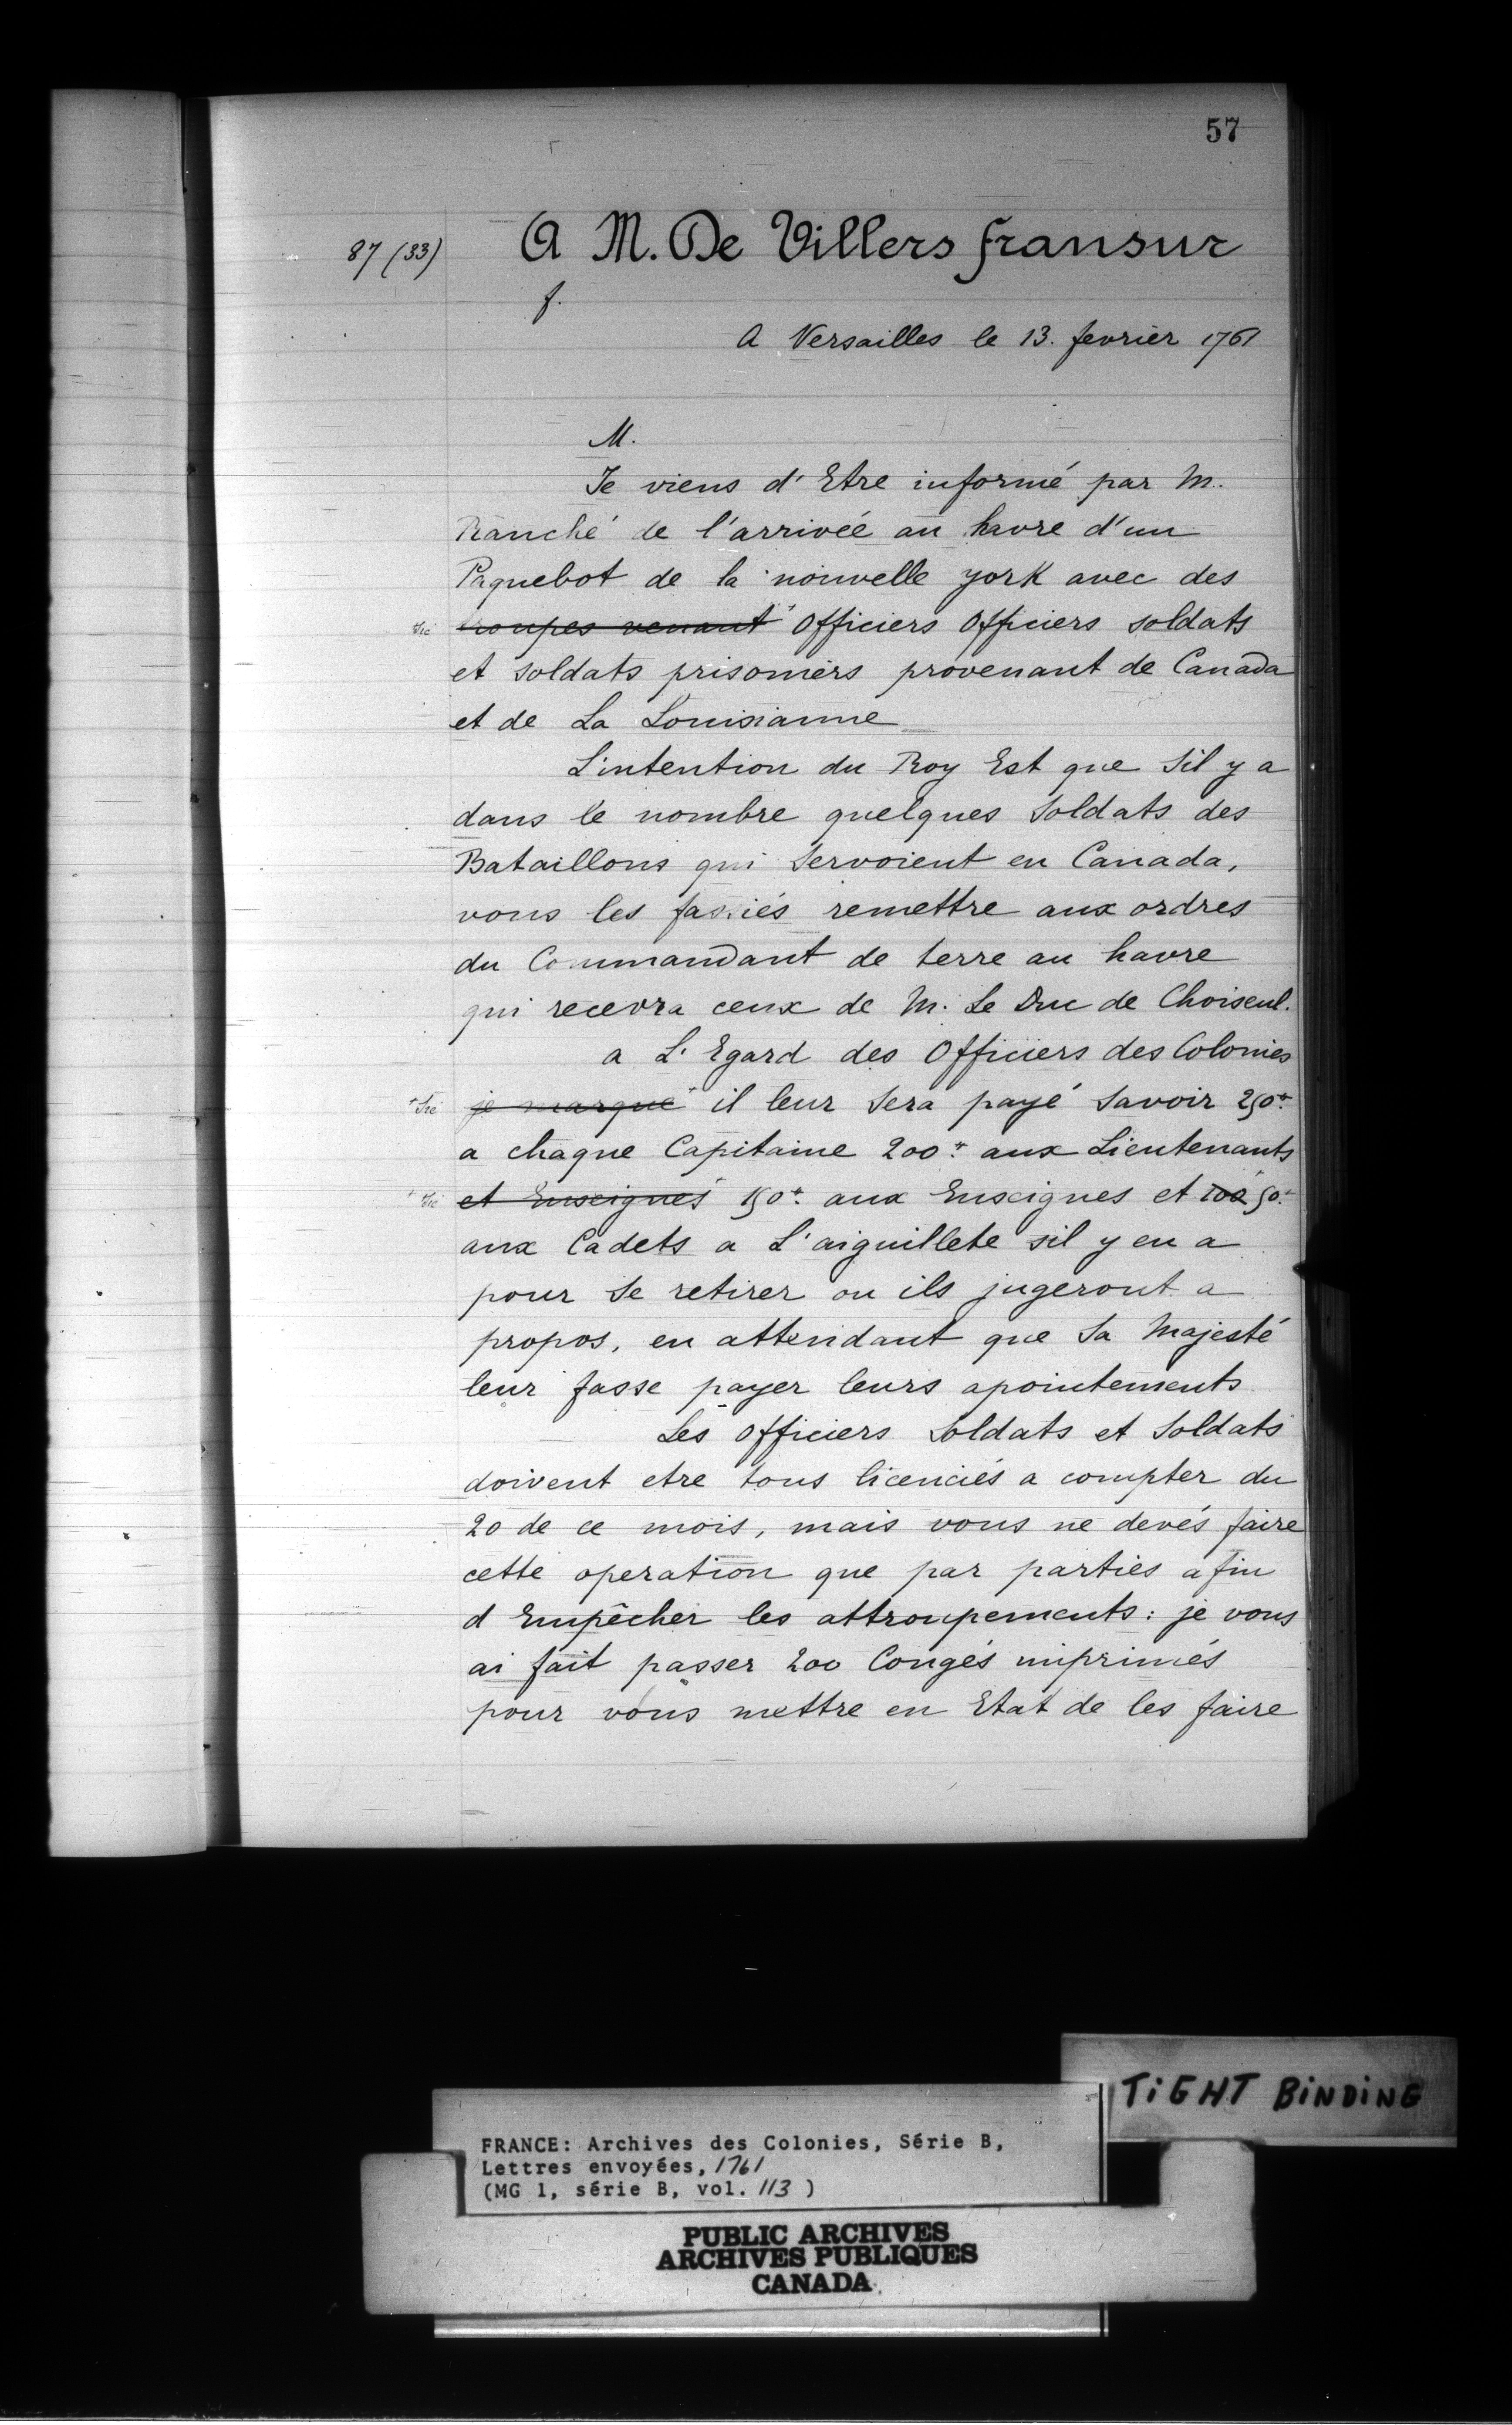 57
87 (33)
A M. De Villers fransur
f.
A Versailles le 13. fevrier 1761
M.
Je viens d'Etre informé par M.
Ranché de l'arrivée au havre d'un
Paquebot de la nouvelle york avec des
sic troupes venant + Officiers Officiers soldats
et soldats prisoniers provenant de Canada
et de La Louisianne
L'intention du Roy Est que Sil y a
dans le nombre quelques Soldats des
Bataillons qui Servoient en Canada,
vous les fassiés remettre aux ordres
du Commandant de terre au havre
qui recevra ceux de M. Le Duc de Choiseul.
a L'Egard des Officiers des Colonies
+ Sic je marque + il leur Sera payé Savoir 250#
a chaque Capitaine 200# aux Lieutenants
+ Sic et Enseignes + 150# aux Enseignes et 100 50#
aux Cadets a L'aiguillete sil y en a
pour Se retirer ou ils jugeront a
propos, en attendant que Sa Majesté
leur fasse payer leurs apointements
Les Officiers Soldats et Soldats
doivent etre tous licenciés a compter du
20 de ce mois, mais vous ne devés faire
cette operation que par parties afin
d Empêcher les attroupements : je vous
ai fait passer 200 Congés imprimés
pour vous mettre en Etat de les faire
TIGHT BINDING
FRANCE: Archives des Colonies, Série B,
Lettres envoyées, 1761
(MG 1, série B, vol. 113 )
PUBLIC ARCHIVES
ARCHIVES PUBLIQUES
CANADA